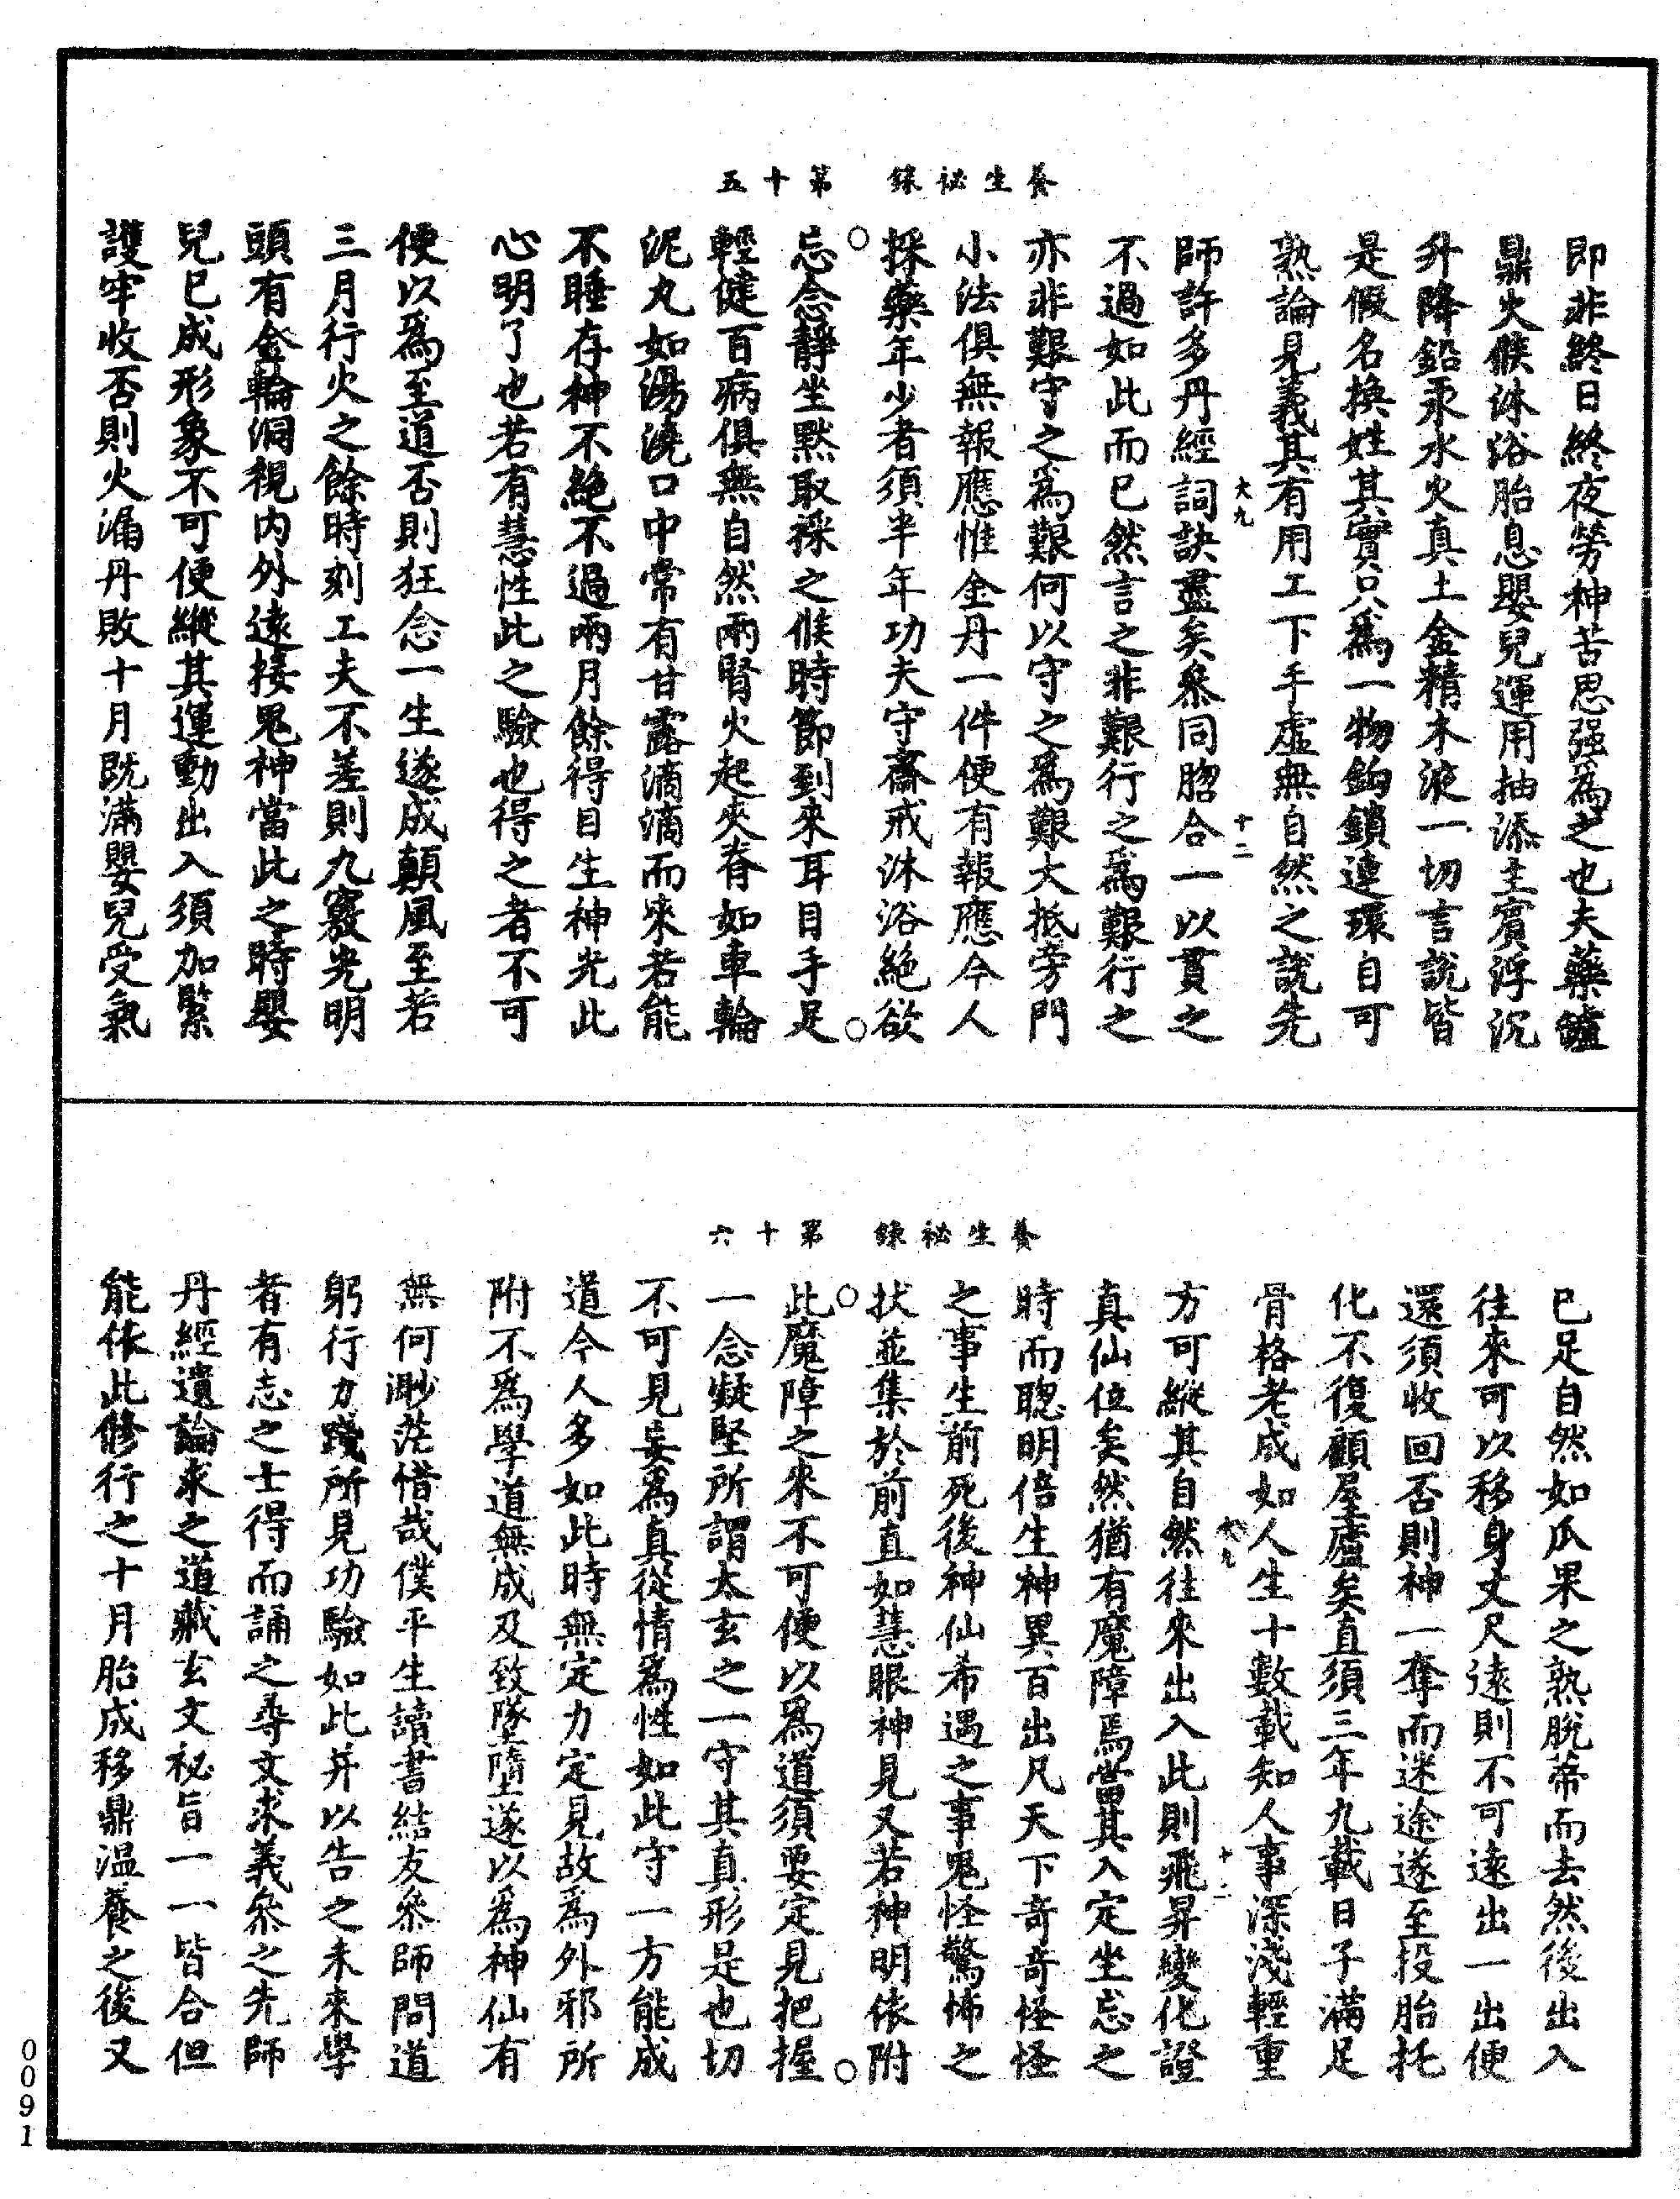 養生祕錄　第十五
即非終日終夜勞神苦思强為之也夫藥鑪
鼎火候沐浴胎息嬰兒運用抽添主賓浮沉
升降鉛汞水火真土金精木液一切言說皆
是假名換姓其實只為一物鈎鎖連環自可
熟論見義其有用工下手虛無自然之說先
大九　十二
師許多丹經詞訣盡矣叅同脗合一以貫之
不過如此而已然言之非艱行之為艱行之
亦非艱守之為艱何以守之為艱大抵旁門
小法俱無報應惟金丹一件便有報應今人
採藥年少者須半年功夫守齋戒沐浴絕欲
○　○
忘念靜坐黙取採之候時節到來耳目手足
輕健百病俱無自然兩腎火起夾脊如車輪
泥丸如湯澆口中常有甘露滴滴而來若能
不睡存神不絕不過兩月餘得目生神光此
心明了也若有慧性此之驗也得之者不可
便以為至道否則狂念一生遂成顛風至若
三月行火之餘時刻工夫不差則九竅光明
頭有金輪洞視內外遠接鬼神當此之時嬰
兒已成形象不可便縱其運動出入須加緊
護牢收否則火漏丹敗十月既滿嬰兒受氣
養生祕錄　第十六
已足自然如瓜果之熟脫蒂而去然後出入
往來可以移身丈尺遠則不可遠出一出便
還須收回否則神一奪而迷途遂至投胎托
化不復顧屋廬矣直須三年九載日子滿足
骨格老成如人生十數載知人事深淺輕重
九　十二
方可縱其自然往來出入此則飛昇變化證
真仙位矣然猶有魔障焉當其入定坐忘之
時而聰明倍生神異百出凡天下奇奇怪怪
之事生前死後神仙希遇之事鬼怪驚怖之
狀並集於前直如慧眼神見又若神明依附
○　○
此魔障之來不可便以為道須要定見把握
一念凝堅所謂太玄之一守其真形是也切
不可見妄為真從情為性如此守一方能成
道今人多如此時無定力定見故為外邪所
附不為學道無成及致墜墮遂以為神仙有
無何渺茫惜哉僕平生讀書結友叅師問道
躬行力踐所見功驗如此并以告之未來學
者有志之士得而誦之尋文求義叅之先師
丹經遺論求之道藏玄文祕旨一一皆合但
能依此修行之十月胎成移鼎溫養之後又
0091